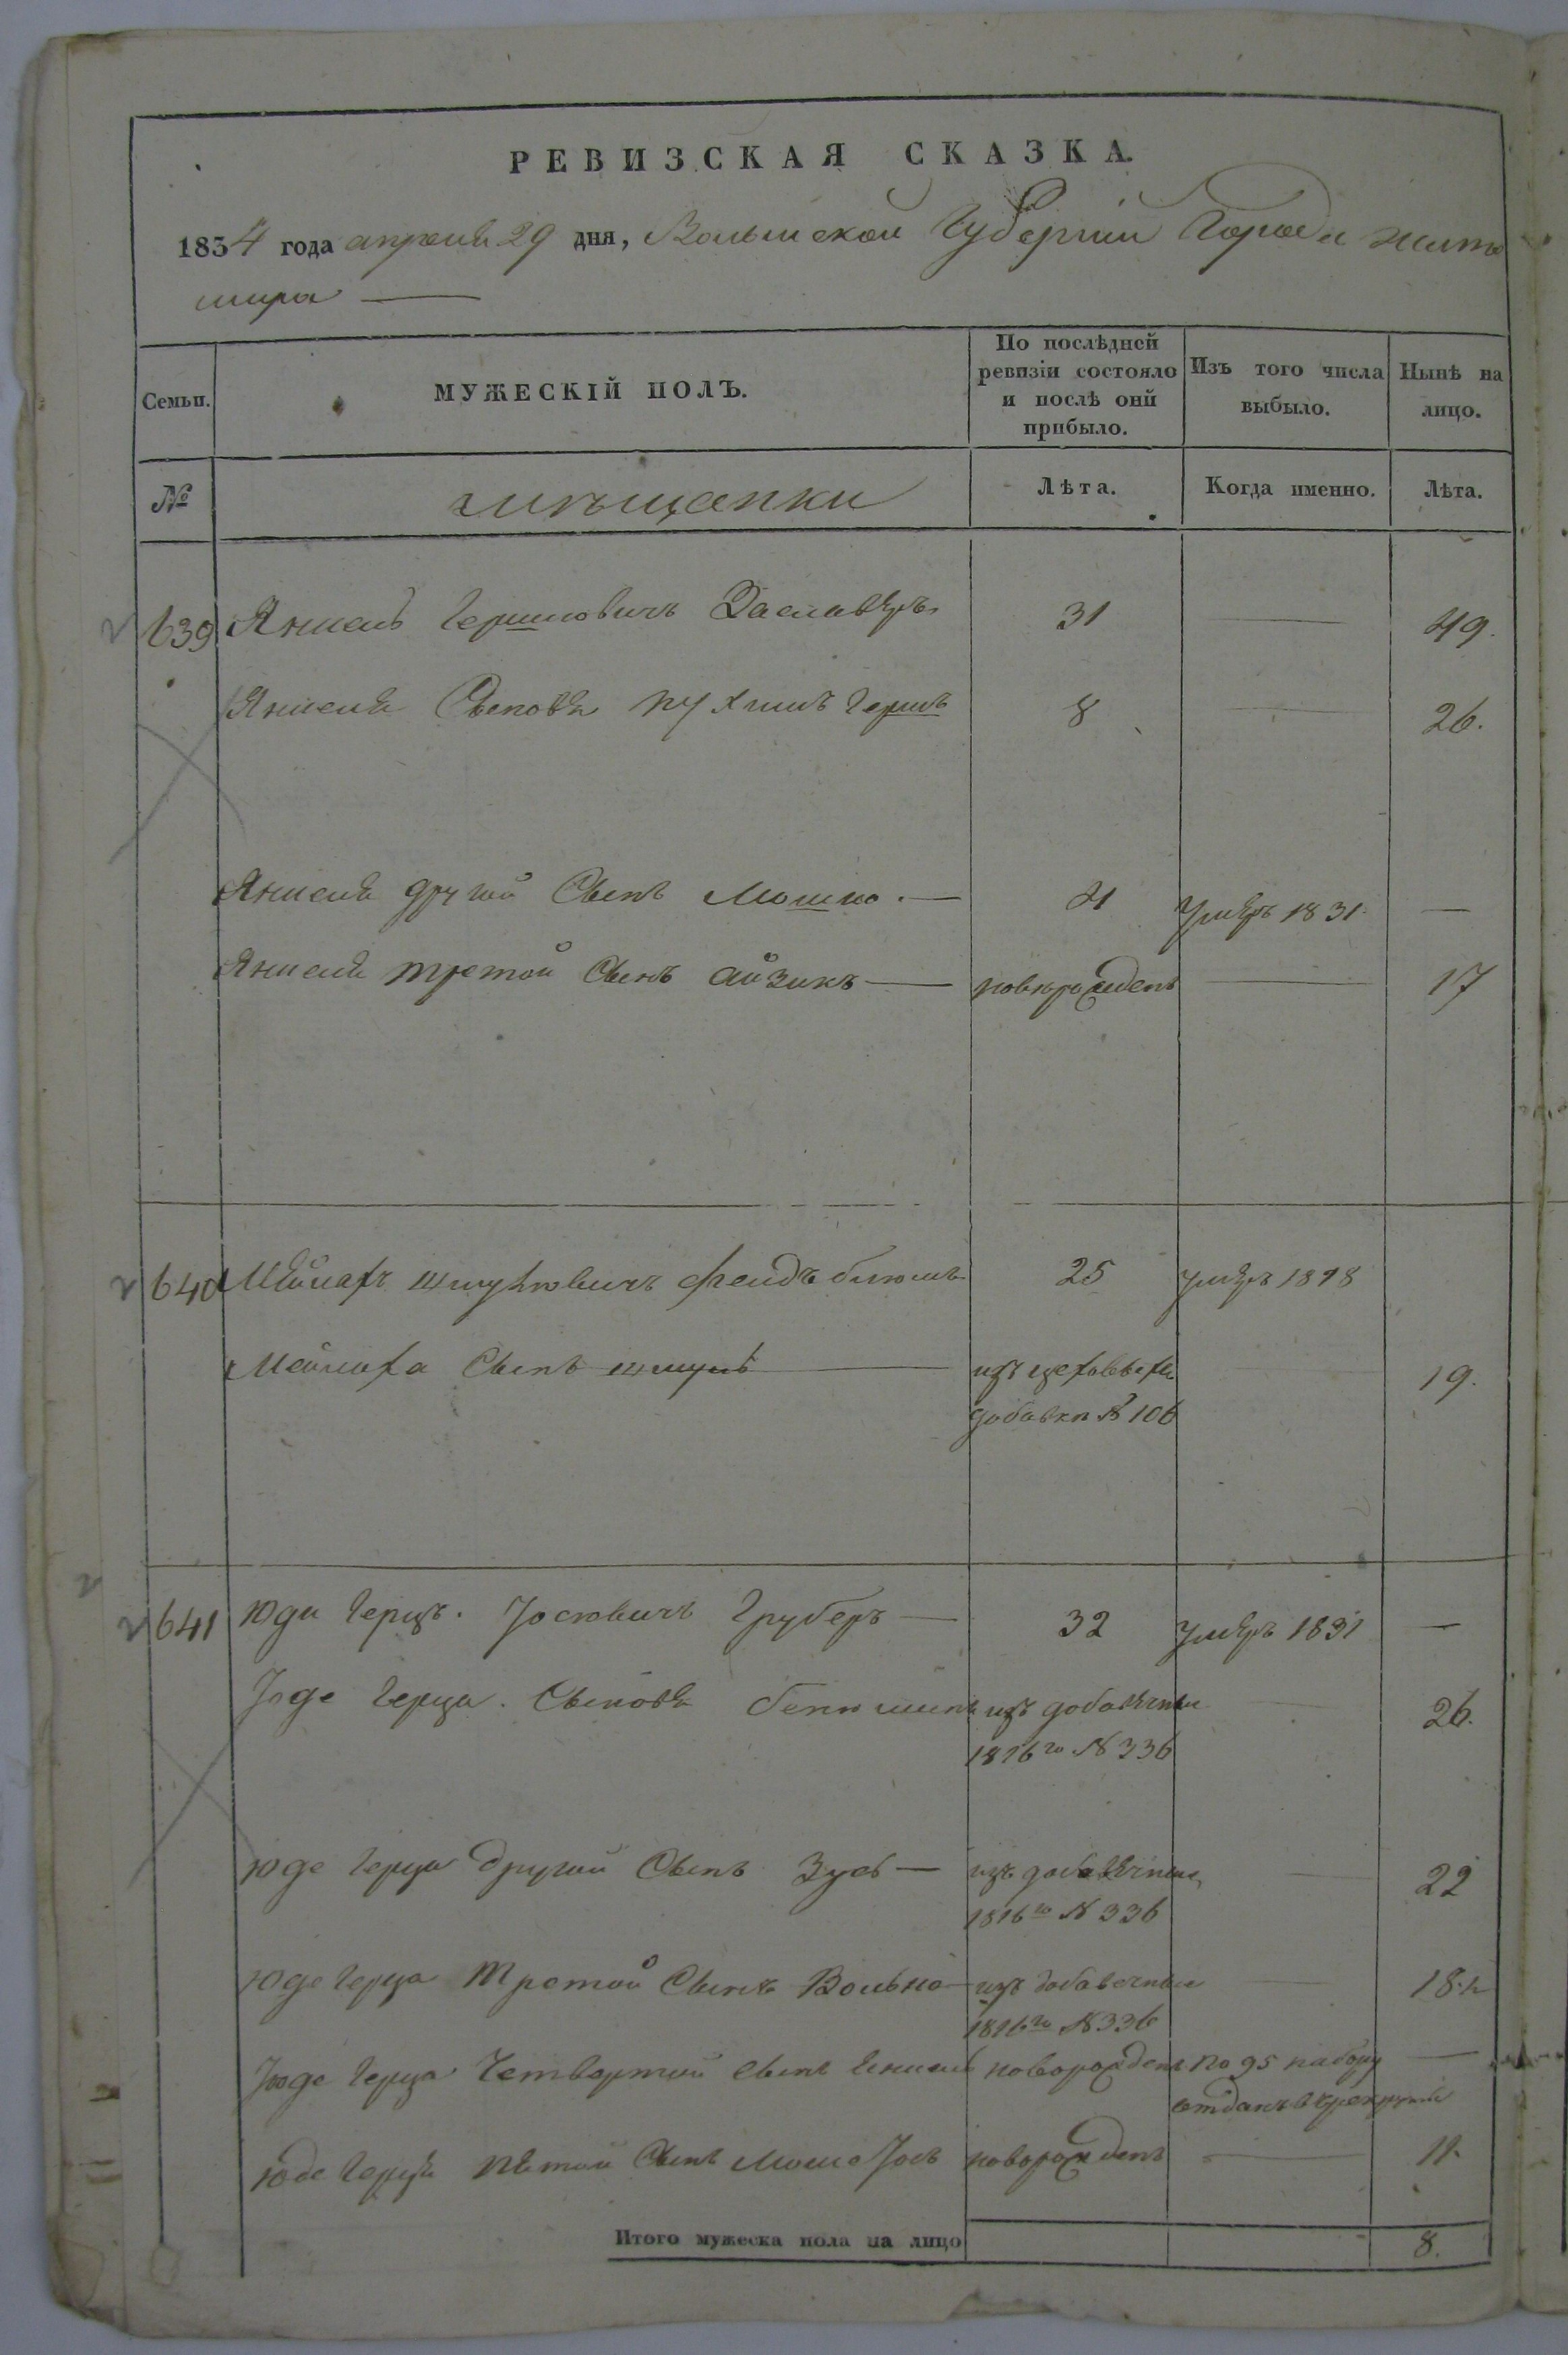 РЕВИЗСКАЯ СКАЗКА.
1834 года апреля 29 дня, Волынской Губернии Города Жито
мира —
Семьи.
МУЖЕСКІЙ ПОЛЪ.
По послѣдней ревизіи состояло и послѣ оной прибыло.
Изъ того числа выбыло.
Нынѣ на лицо.
№
мѣщанки
Лѣта.
Когда именно.
Лѣта.
639 Янкель Гершковичъ Заславеръ 31 — 49.
Янкеля Сыновя Пухлиъ Гершъ 8 — 26.
Янкеля другой Сынъ Мошко. — 21 умеръ 1831. —
Янкеля третой Сынъ Айзикъ — новорожденъ — 17
640 Шмулювичъ 25 умеръ 1818
Мейлаха Сынъ Шмуль — изъ цеховыхъ 19.
добавки № 106
641 Юда Герцъ. Іосювичъ Груберъ — 32 умеръ 1831 —
Юде Герца. Сыновя изъ добавочныхъ — 26.
1816го № 336
Юде Герца другой Сынъ Зусь — изъ добавочныхъ — 22
1816го № 336
Юде Герца Третой Сынъ Волько — изъ добавочныхъ — 18.
1816го № 336
Юде Герца Четвертий Сынъ новорожденъ по 95 набору —
отданъ в рекруты
Юде Герца пятой Сынъ Мошко Іось новорожденъ — 11.
Итого мужеска пола на лицо 8.